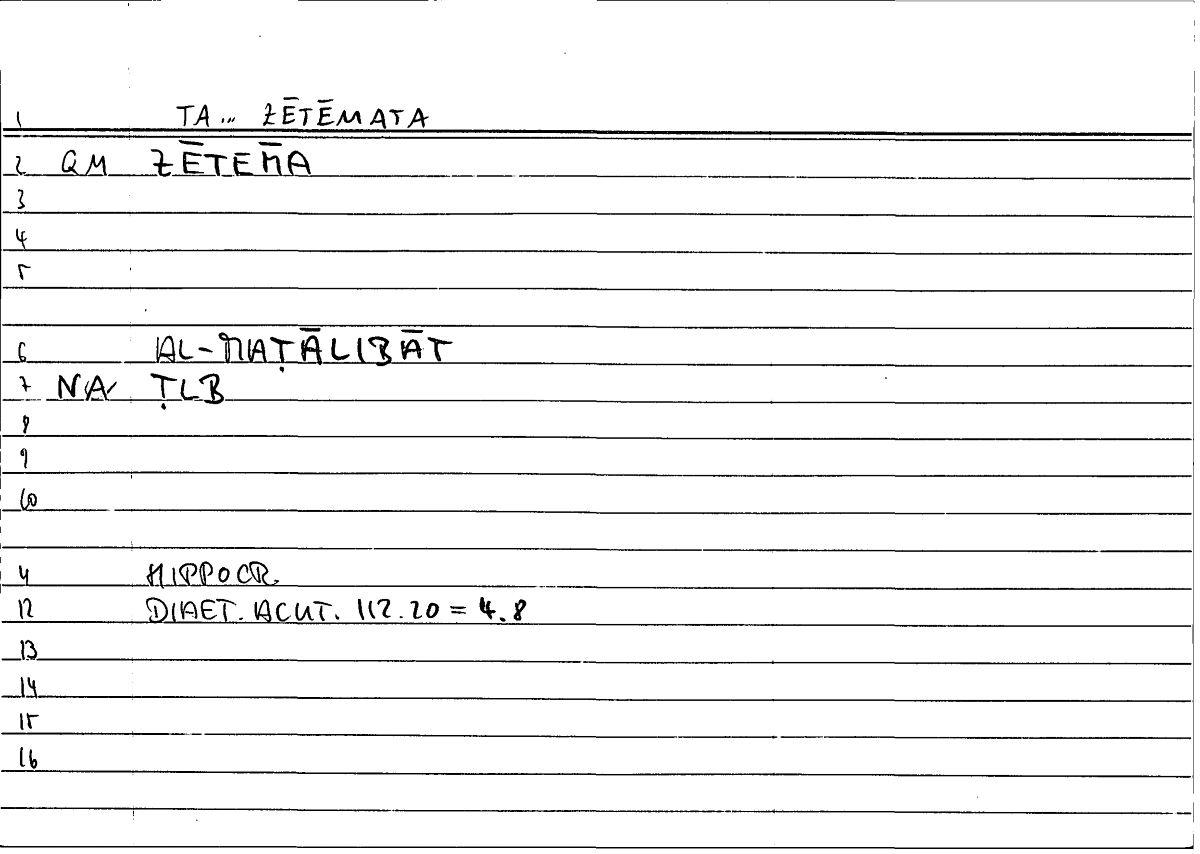 1 TA... ZĒTĒMATA
2 QM ZĒTEM̄A
3
4
5
6 AL-MAṬĀLIBĀT
7 NA ṬLB
8
9
10
11 HIPPOCR.
12 DIAET. ACUT. 112.20 = 4.8
13
14
15
16